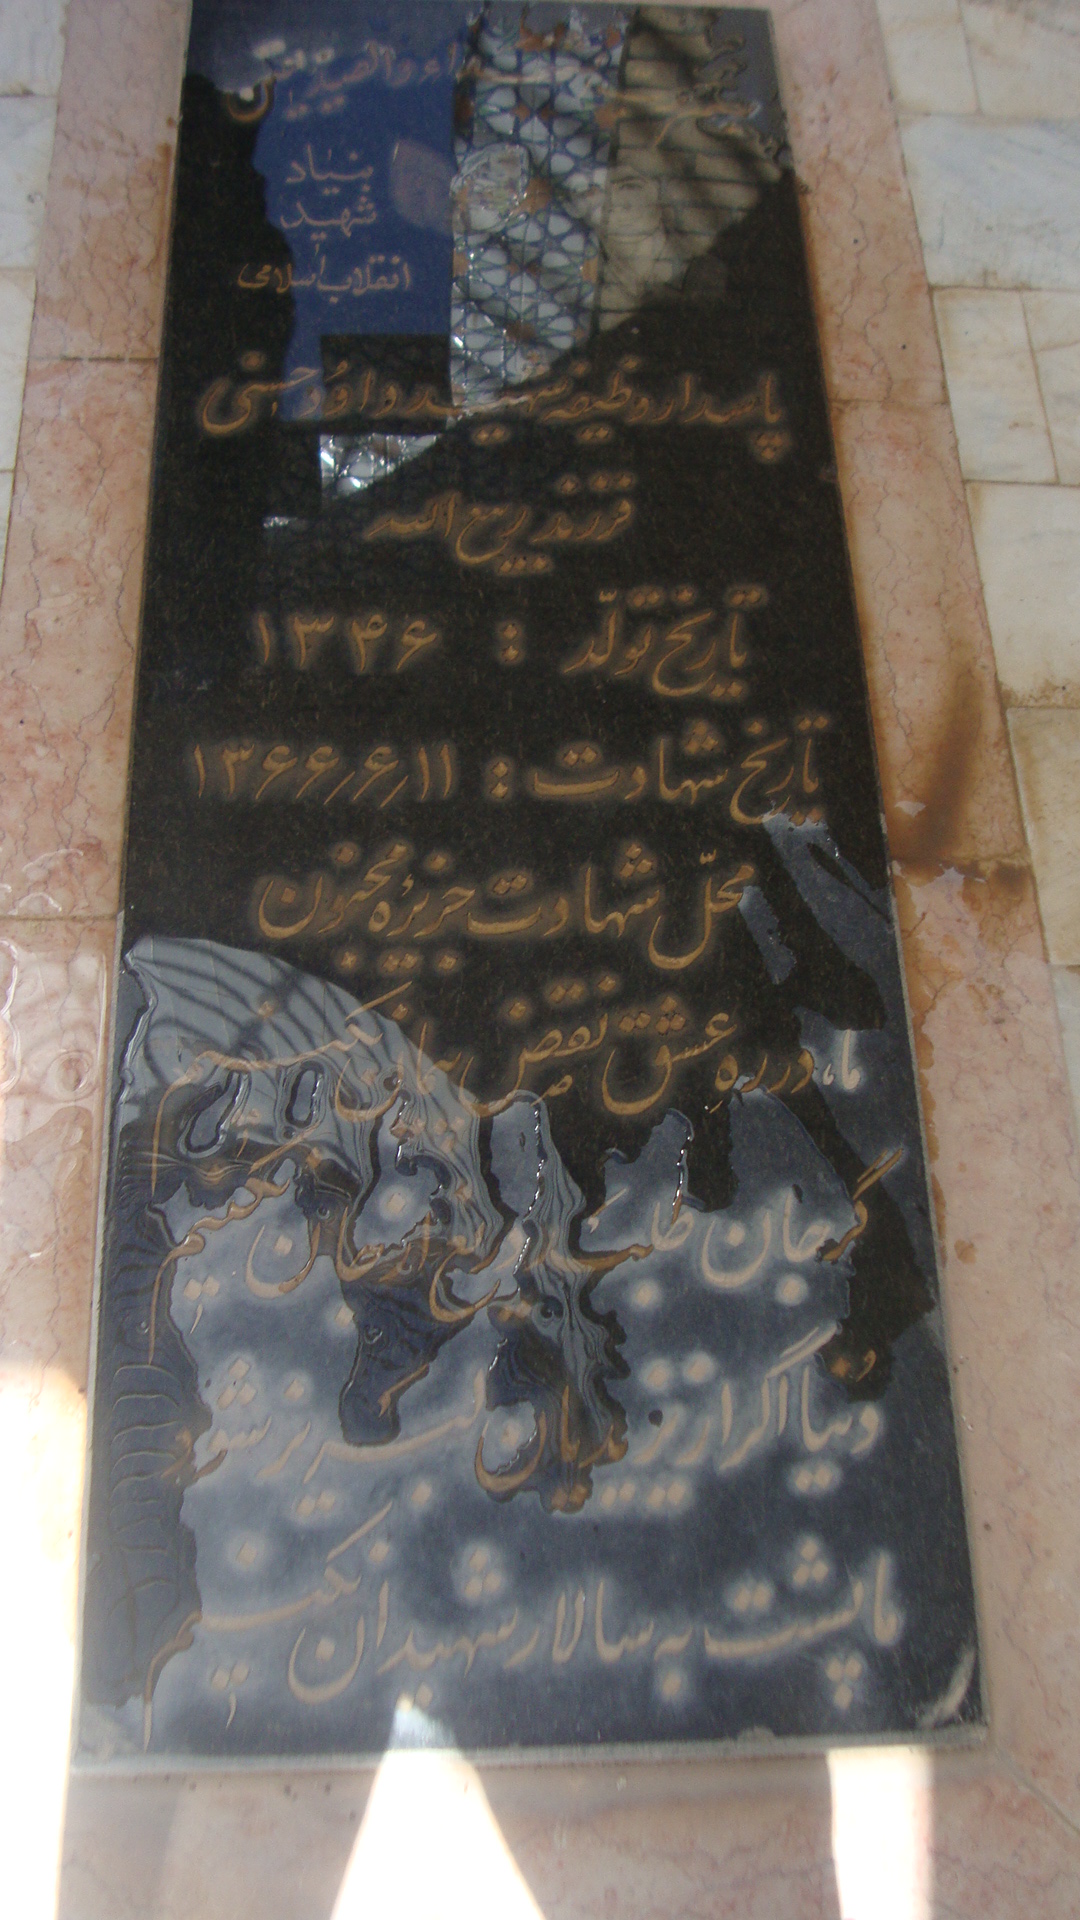 والصدیقین
بنیاد
شهید
انقلاب اسلامی
پاسدار وظیفه شهید داود حسنی
فرزند ربیع الله
تاریخ تولّد : ۱۳۴۶
تاریخ شهادت : ۱۳۶۶/۶/۱۱
محلّ شهادت جزیرهٔ مجنون
ما، در رهِ عشق نقض پیمان نکنیم
گر جان طلبد دریغ از جان نکنیم
دُنیا اگر از یزیدیان لبریز شود
ما پشت به سالار شهیدان نکنیم